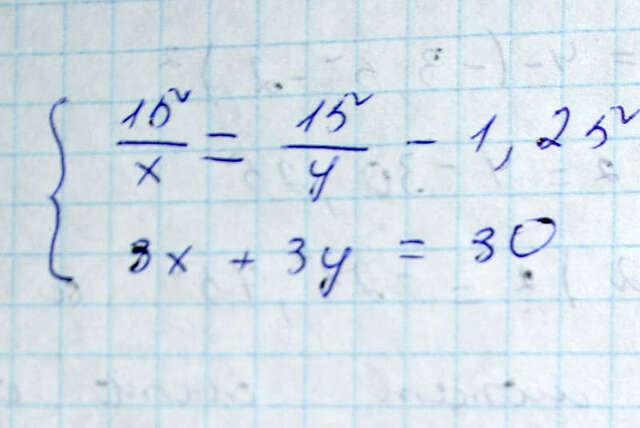 { 15/x = 15/y - 1,25
3x + 3y = 30